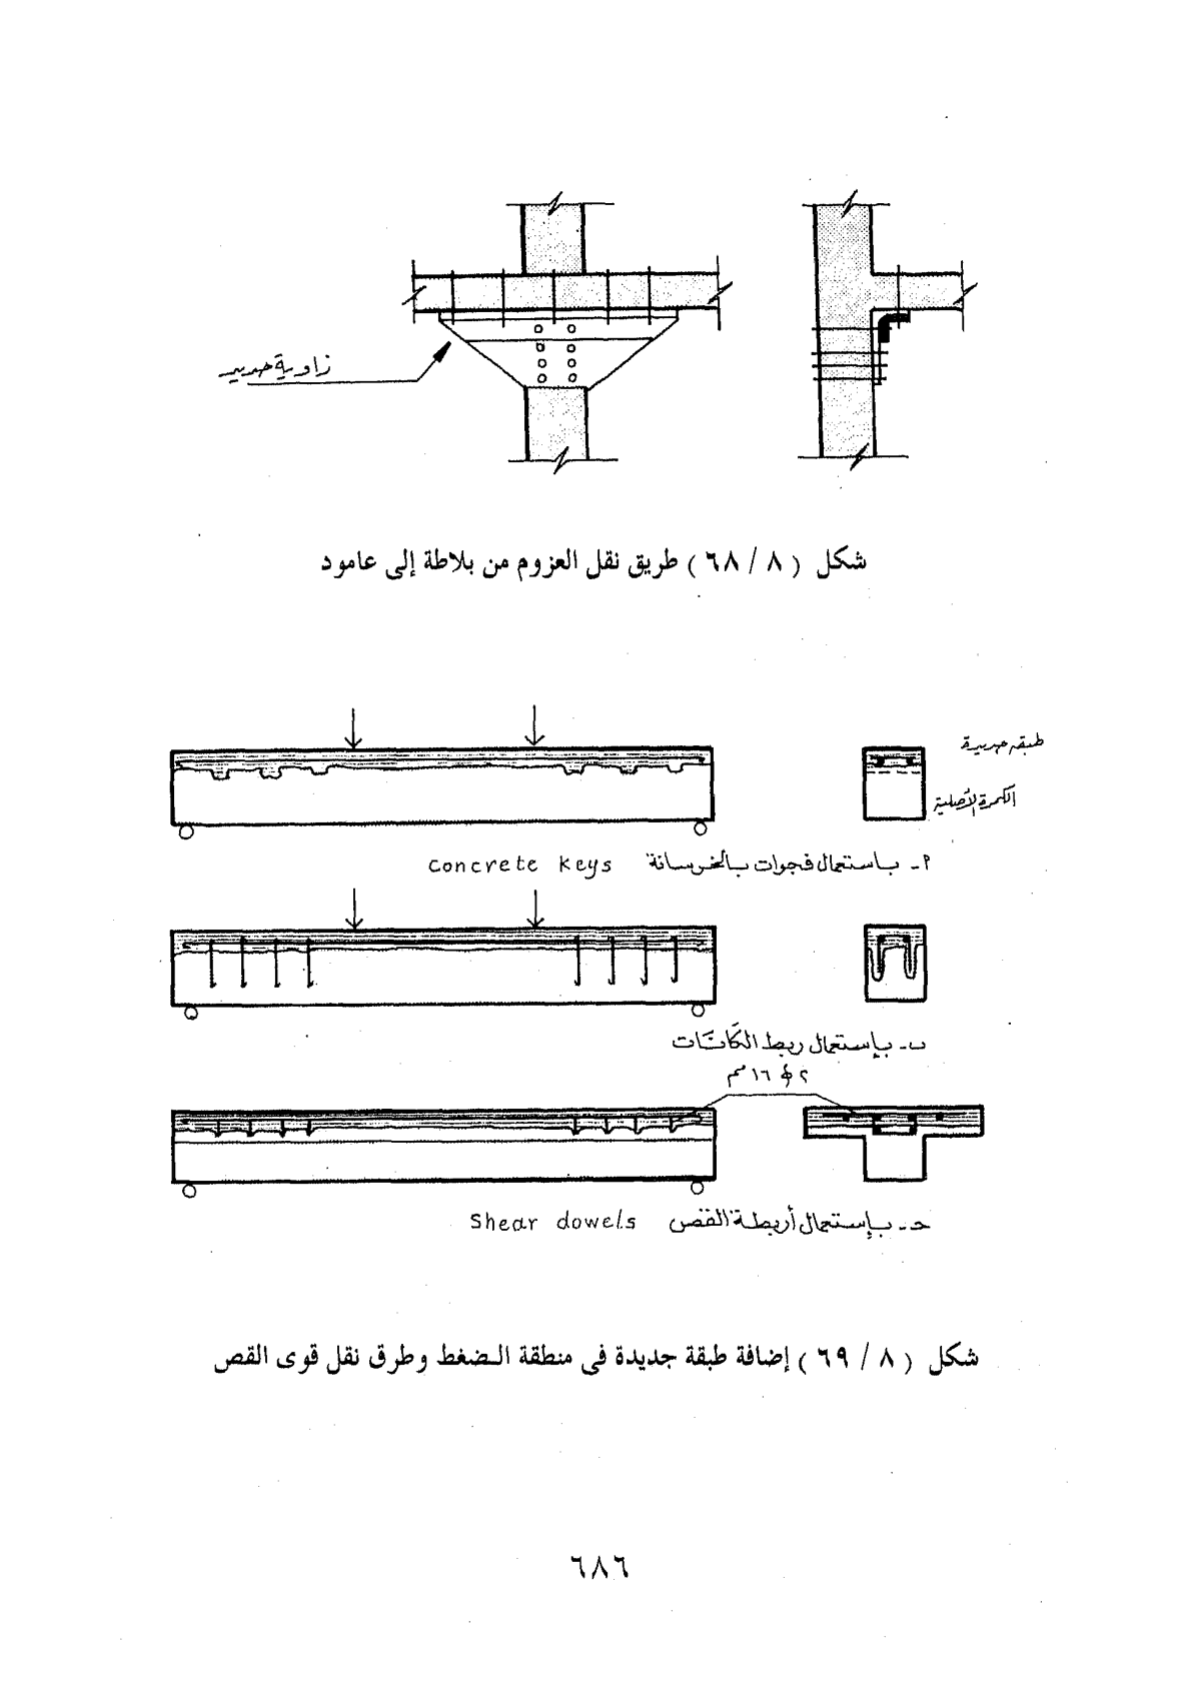 زاوية حديد
شكل ( ٨ / ٦٨ ) طريق نقل العزوم من بلاطة إلى عامود
طبقه جديدة
الكمرة الأصلية
أ - باستعمال فجوات بالخرسانة concrete keys
ب - بإستعمال ربط الكانات
٢ ϕ ١٦ مم
حـ - بإستعمال أربطة القص Shear dowels
شكل ( ٨ / ٦٩ ) إضافة طبقة جديدة فى منطقة الضغط وطرق نقل قوى القص
٦٨٦